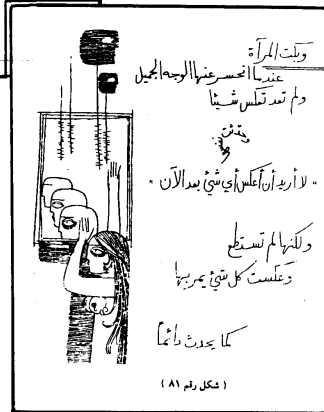 وبكت المرآة
عندما انحسر عنها الوجه الجميل
ولم تعد تعكس شيئا
وحدثت نفسها
"لا أريد أن أعكس أي شئ بعد الآن"
ولكنها لم تستطع
وعكست كل شئ يمر بها
كما يحدث دائماً
( شكل رقم ٨١ )